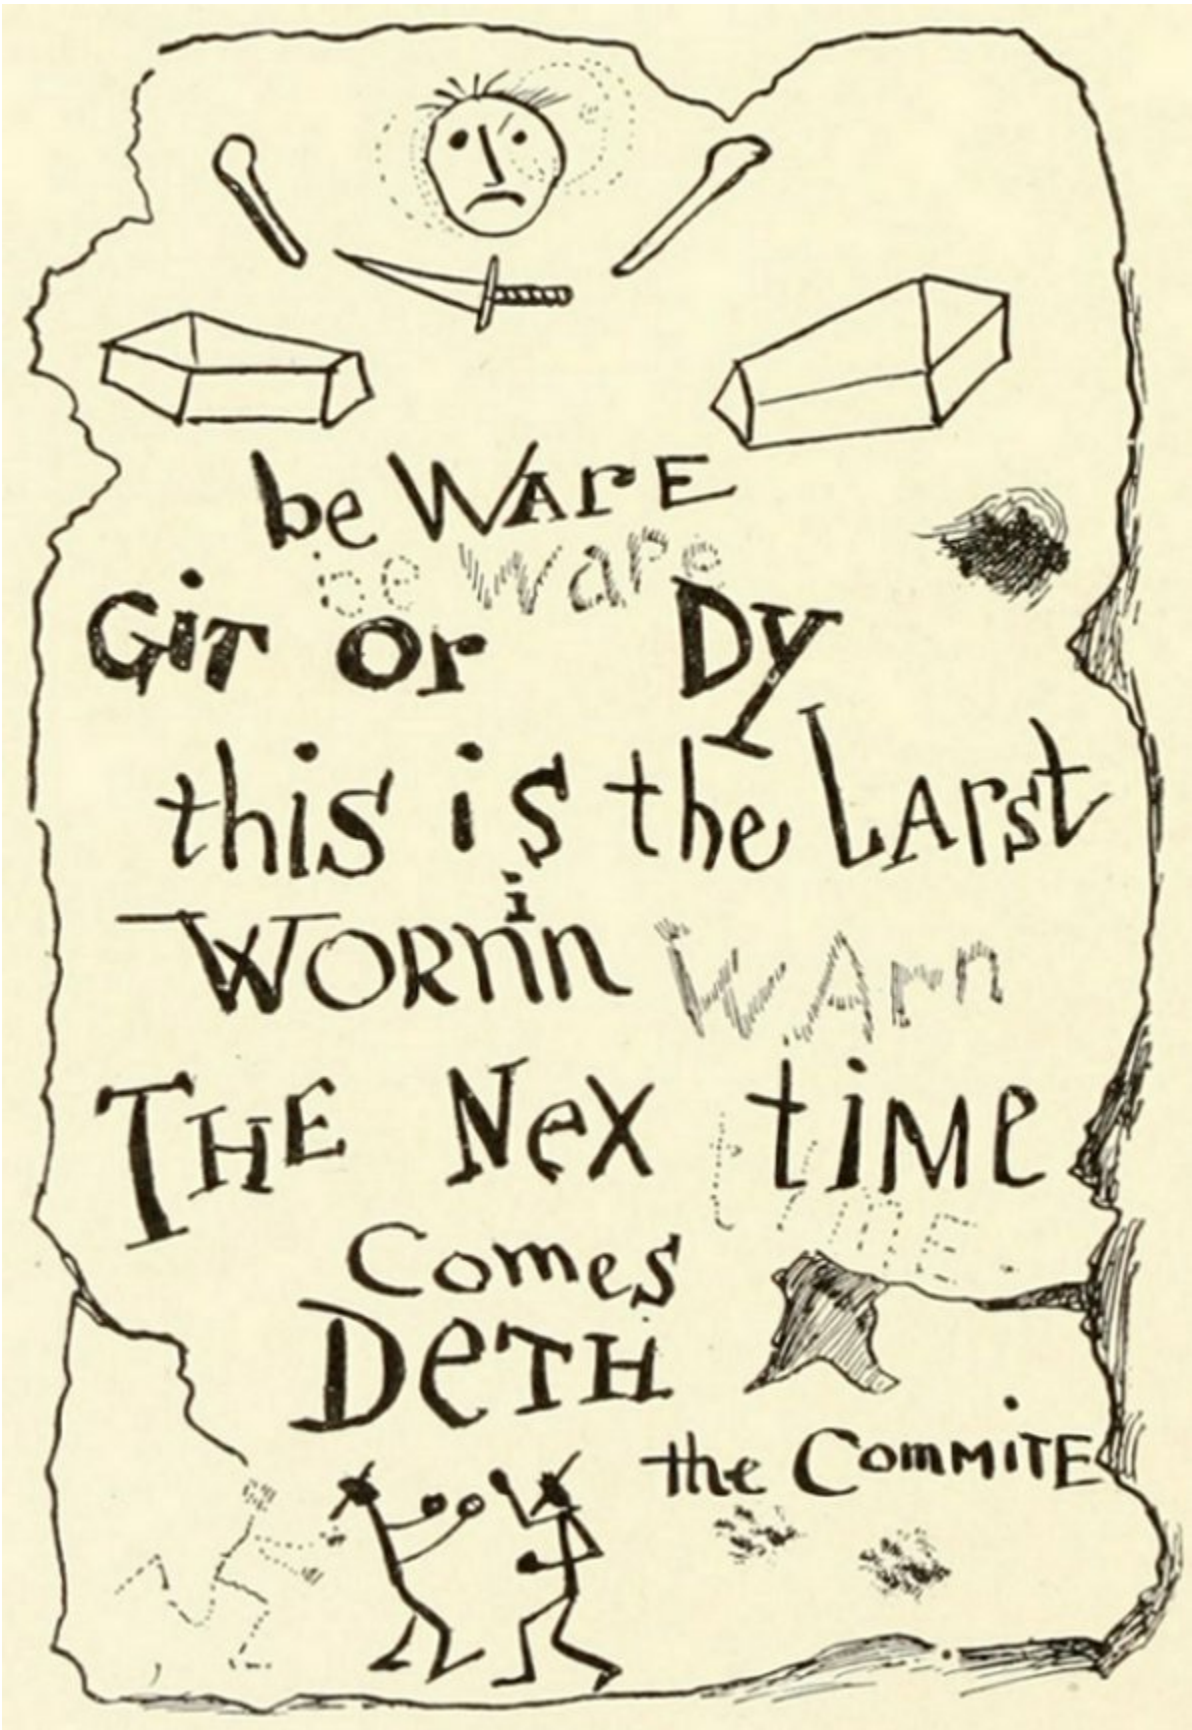 be WArE
be Ware
GiT or Dy
this is the LArst
WORnin WArn
THE NeX time
time
Comes
DeTH
the CommiTE